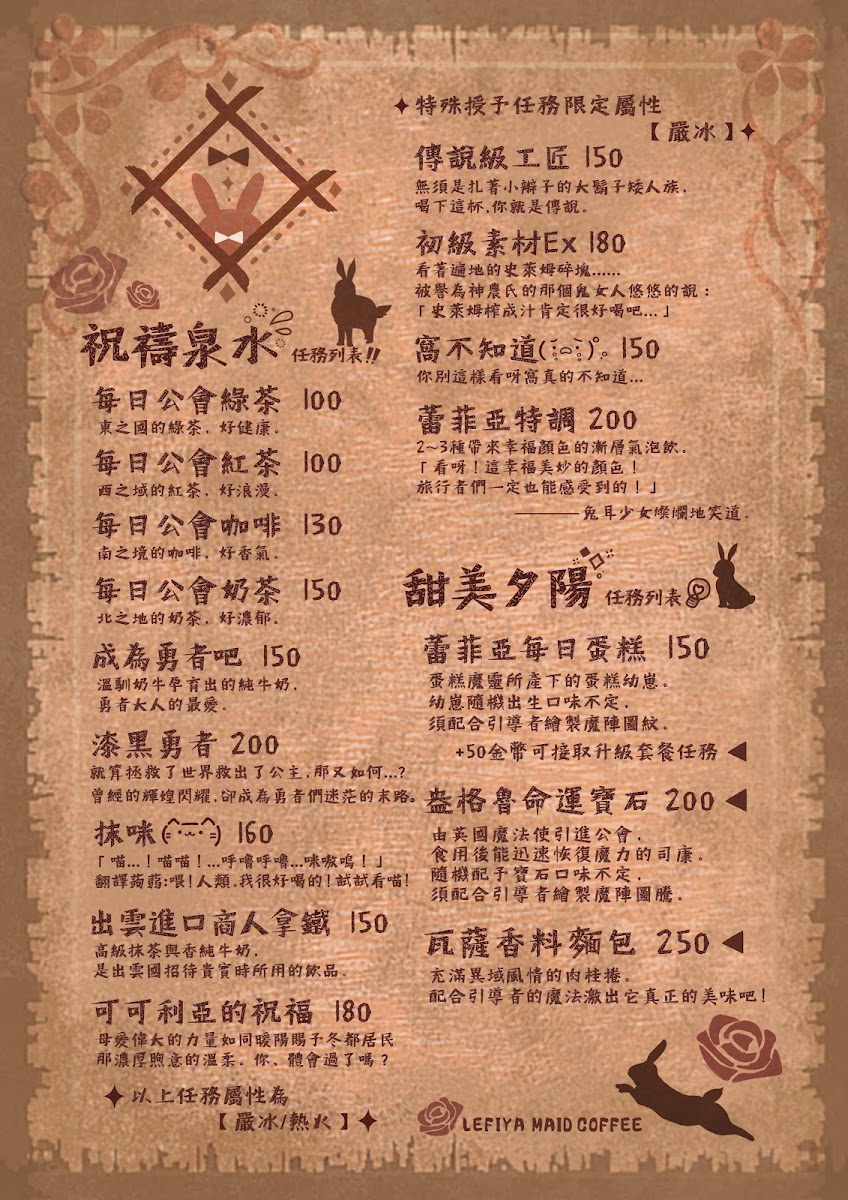 祝禱泉水 任務列表!!
每日公會綠茶 100
東之國的綠茶,好健康。
每日公會紅茶 100
西之域的紅茶,好浪漫。
每日公會咖啡 130
南之境的咖啡,好香氣。
每日公會奶茶 150
北之地的奶茶,好濃郁。
成為勇者吧 150
溫馴奶牛孕育出的純牛奶,
勇者大人的最愛。
漆黑勇者 200
就算拯救了世界救出了公主,那又如何...?
曾經的輝煌閃耀,卻成為勇者們迷茫的末路。
抹咪 160
「喵...!喵喵!...呼嚕呼嚕...咪嗷嗚!」
翻譯蒟蒻:喂!人類,我很好喝的!試試看喵!
出雲進口商人拿鐵 150
高級抹茶與香純牛奶,
是出雲國招待貴賓時所用的飲品。
可可利亞的祝福 180
母愛偉大的力量如同暖陽賜予冬都居民
那濃厚煦意的溫柔。你,體會過了嗎?
✦以上任務屬性為
【嚴冰/熱火】✦
✦特殊授予任務限定屬性
【嚴冰】✦
傳說級工匠 150
無須是扎著小辮子的大鬍子矮人族,
喝下這杯,你就是傳說。
初級素材Ex 180
看著遍地的史萊姆碎塊......
被譽為神農氏的那個鬼女人悠悠的說:
「史萊姆榨成汁肯定很好喝吧...」
窩不知道 150
你別這樣看呀窩真的不知道...
蕾菲亞特調 200
2~3種帶來幸福顏色的漸層氣泡飲。
「看呀!這幸福美妙的顏色!
旅行者們一定也能感受到的!」
———兔耳少女燦爛地笑道。
甜美夕陽 任務列表
蕾菲亞每日蛋糕 150
蛋糕魔靈所產下的蛋糕幼崽。
幼崽隨機出生口味不定,
須配合引導者繪製魔陣圖紋。
+50金幣可接取升級套餐任務 ◀
盎格魯命運寶石 200 ◀
由英國魔法使引進公會,
食用後能迅速恢復魔力的司康。
隨機配予寶石口味不定,
須配合引導者繪製魔陣圖騰。
瓦薩香料麵包 250 ◀
充滿異域風情的肉桂捲。
配合引導者的魔法激出它真正的美味吧!
LEFIYA MAID COFFEE